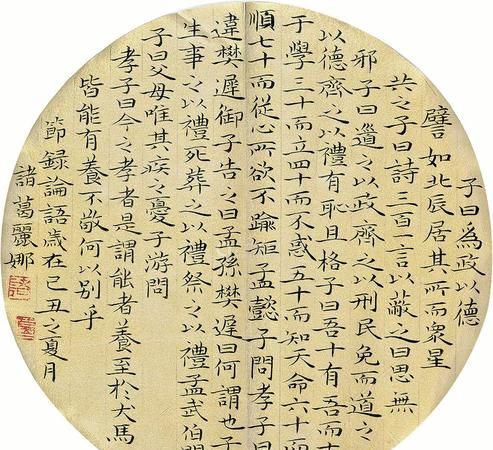 子曰為政以德
譬如北辰居其所而衆星
共之子曰詩三百一言以蔽之曰思無
邪子曰道之以政齊之以刑民免而道之
以德齊之以禮有耻且格子曰吾十有吾而
于學三十而立四十而不惑五十而知天命六十而
順七十而從心所欲不踰矩孟懿子問孝子曰
違樊遲御子告之曰孟孫樊遲曰何謂也子
生事之以禮死葬之以禮祭之以禮孟武伯問
子曰父母唯其疾之憂子游問
孝子曰今之孝者是謂能者養至於犬馬
皆能有養不敬何以別乎
節録論語歲在己丑之夏月
諸葛麗娜